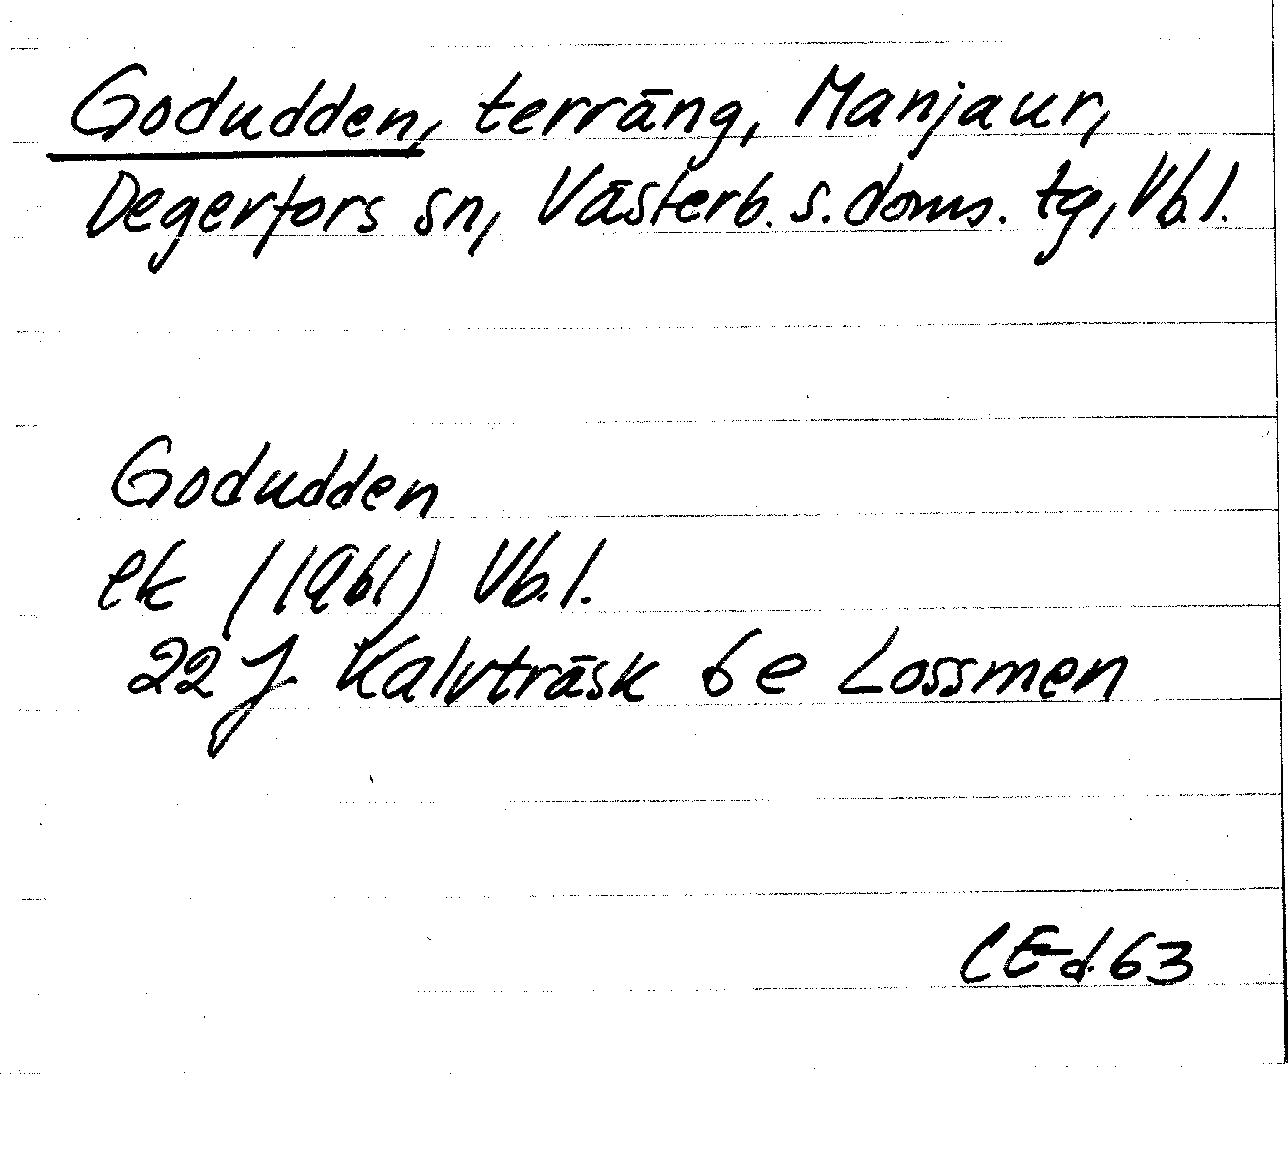 Godudden, terräng, Manjaur,
Degerfors sn, Västerb. s. doms. tg, Vb. l.
Godudden
ek (1961) Vb. l.
22 J Kalvträsk 6 e Lossmen
CEd. 63